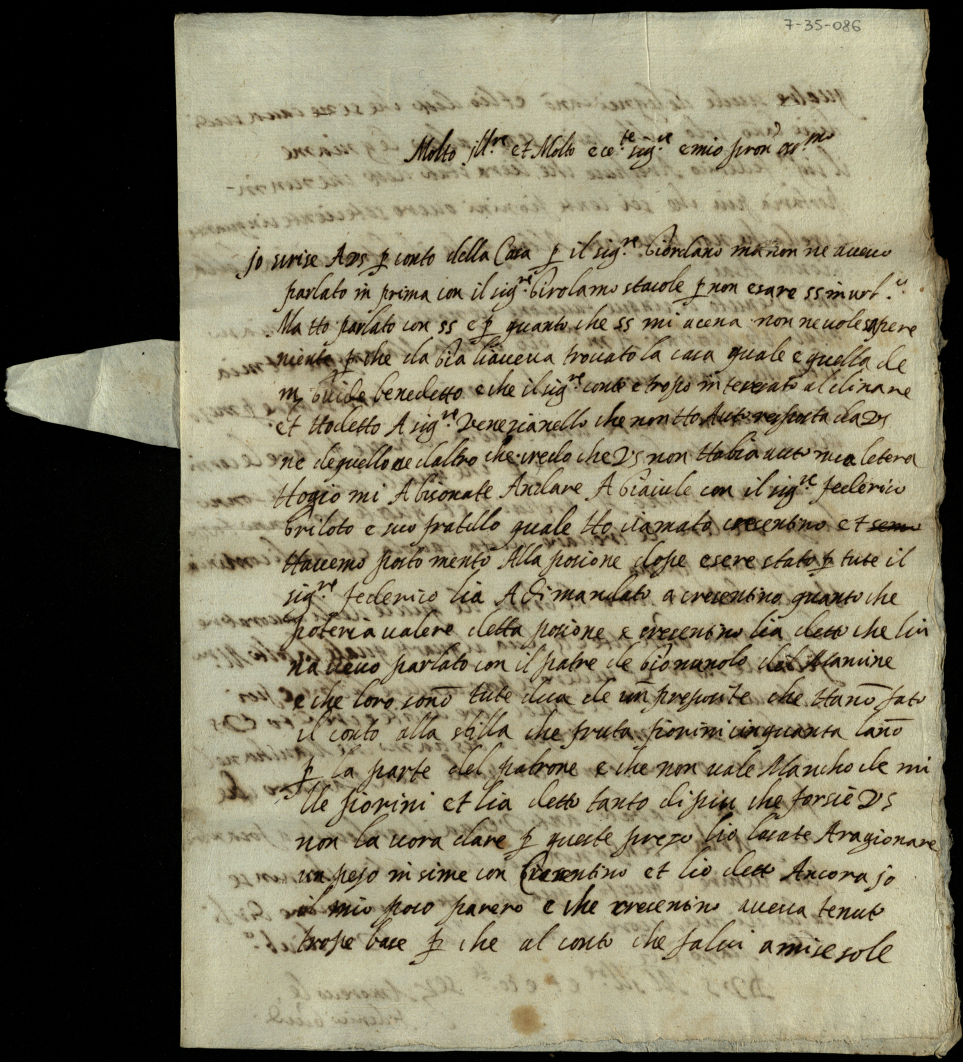 7-35-086
Molto Ill.re et Molto ece.te sig.re e mio pron oss.mo
jo scrise A VS p conto della Casa p il sig.re Giordano ma non ne avevo
parlato in prima con il sig.re Girolamo p non esare ss in
Ma tto parlato con ss e p quanto che ss mi acena non ne vole sapere
niente p che da Gia li aveva trovato la casa quale e quella de
m Guide benedetto e che il sig.re conte e tropo interesato al clinare
et Ho detto A sig.re Venezianello che non Ho Auto resposta da VS
ne de quello ne d altro che credo che VS non Habia auto mia letera
Hogio mi A bisonate Andare A con il sig.re federico
briloto e suo fratello quale Ho ciamato cresentino et
Havemo posto mento Alla posione dope esere stato p tute il
sig.re federico lia A dimandato a cresentino quanto che
poteria valere detta posione e cresentino lia dett che lui
n aveva parlato con il patre de
e che loro sono tute dua de un preposite che Hano fato
il conto alla stilla che fruta fiorini cinquanta l ano
p la parte del patrone e che non vale Mancho de mi
lle fiorini et lia dett tanto di piu che forsie VS
non la vora dare p queste preso lio lasate A ragionare
un peso insime con Cresentino et lio dett Ancora jo
il mio poco parero e che cresentino aveva tenut
trope base p che al conto che falui a mise sole